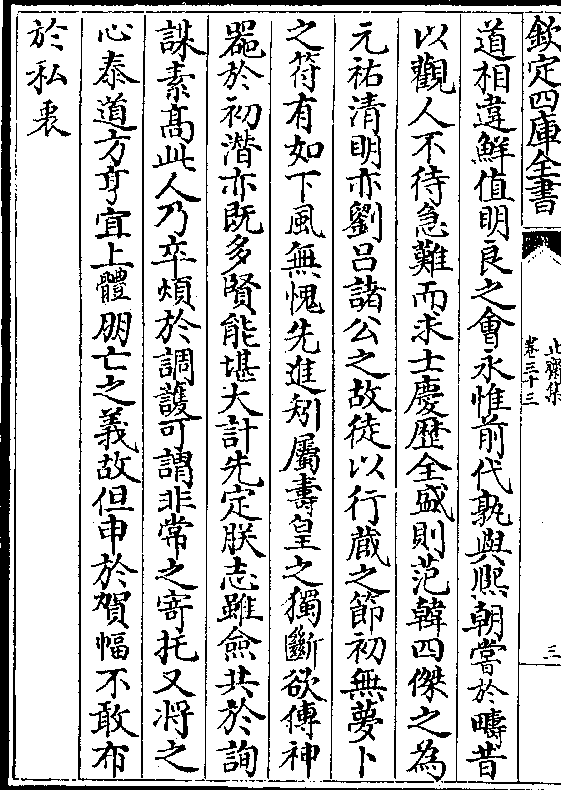 欽定四庫全書
止齋集
卷三十三
三
道相違鮮值明良之會永惟前代孰與熙朝嘗於疇昔
以觀人不待急難而求士慶歴全盛則范韓四傑之為
元祐清明亦劉呂諸公之故徒以行蔵之節初無夢卜
之符有如下風無愧先進矧屬壽皇之獨斷欲傳神
器於初潛亦既多賢能堪大計先定朕志雖僉共於詢
謀素髙此人乃卒煩於調護可謂非常之寄托又將之
心泰道方亨宜上體朋亡之義故但申於賀幅不敢布
於私衷